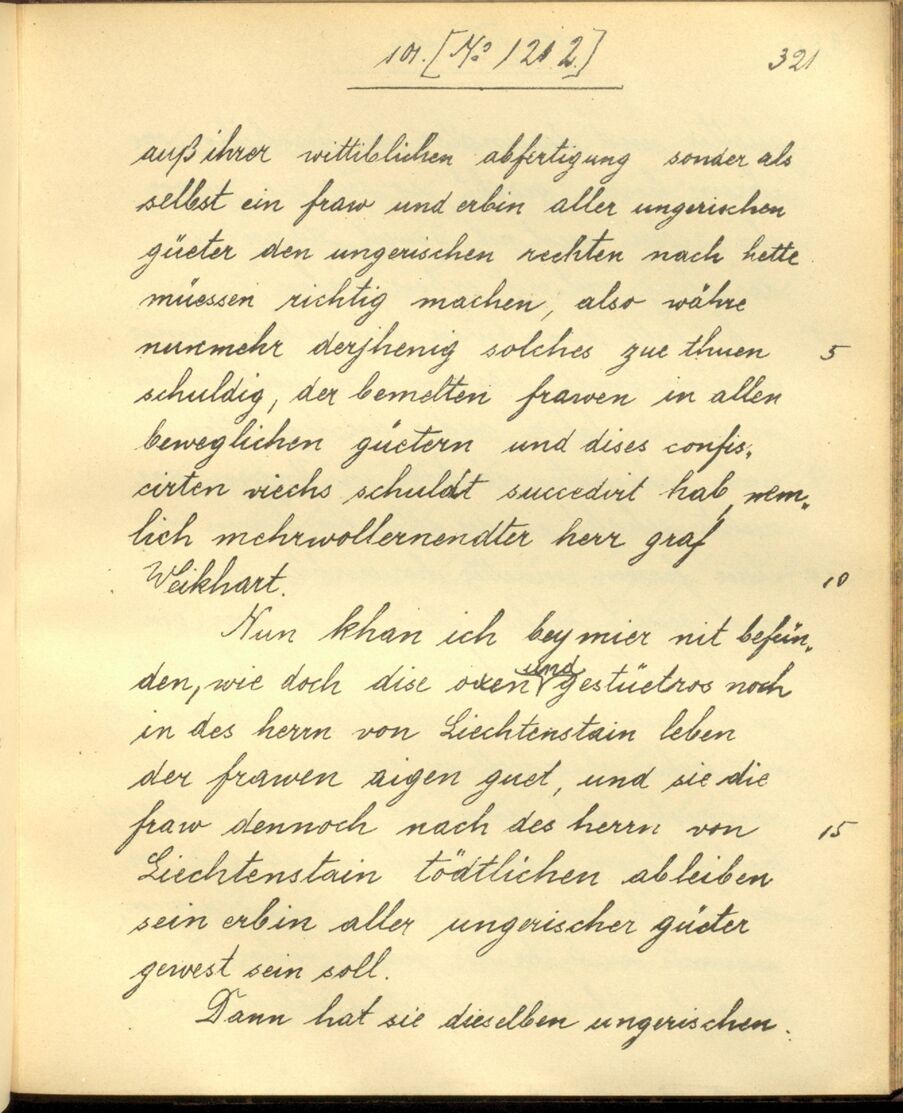 101. [No 1212] 321
auß ihrer wittiblichen abfertigung sonder als
selbst ein fraw und erbin aller ungerischen
güeter den ungerischen rechten nach hette
müessen richtig machen, also währe
nunmehr derjhenig solches zue thuen 5
schuldig, der bemelten frawen in allen
beweglichen güetern und dises confis„
cirten viechs schuldt succedirt hab, nem„
lich mehrwollernendter herr graf
Weikhart. 10
Nun khan ich bey mier nit befün„
den, wie doch dise oxen und gestüetros noch
in des herrn von Liechtenstain leben
der frawen aigen guet, und sie die
fraw dennoch nach des herrn von 15
Liechtenstain tödtlichen ableiben
sein erbin aller ungerischer güeter
gewest sein soll.
Dann hat sie dieselben ungerischen.